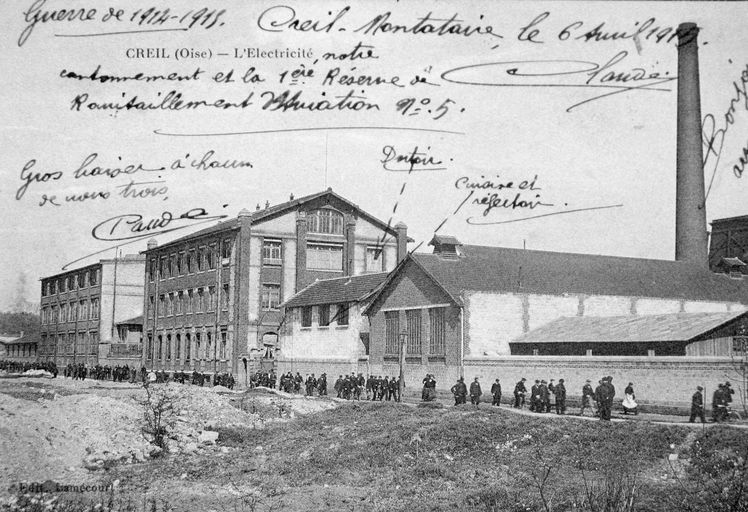 Guerre de 1914-1915.
Creil-Montataire, le 6 Avril 1915.
CREIL (Oise) — L'Electricité, notre
cantonnement et la 1ère Réserve de
Claude
Ravitaillement Aviation No. 5.
Bonjour
Dortoir.
Cuisine et
réfectoir.
Gros baiser à chacun
de nous trois,
Claude
Edit. Lamécourt